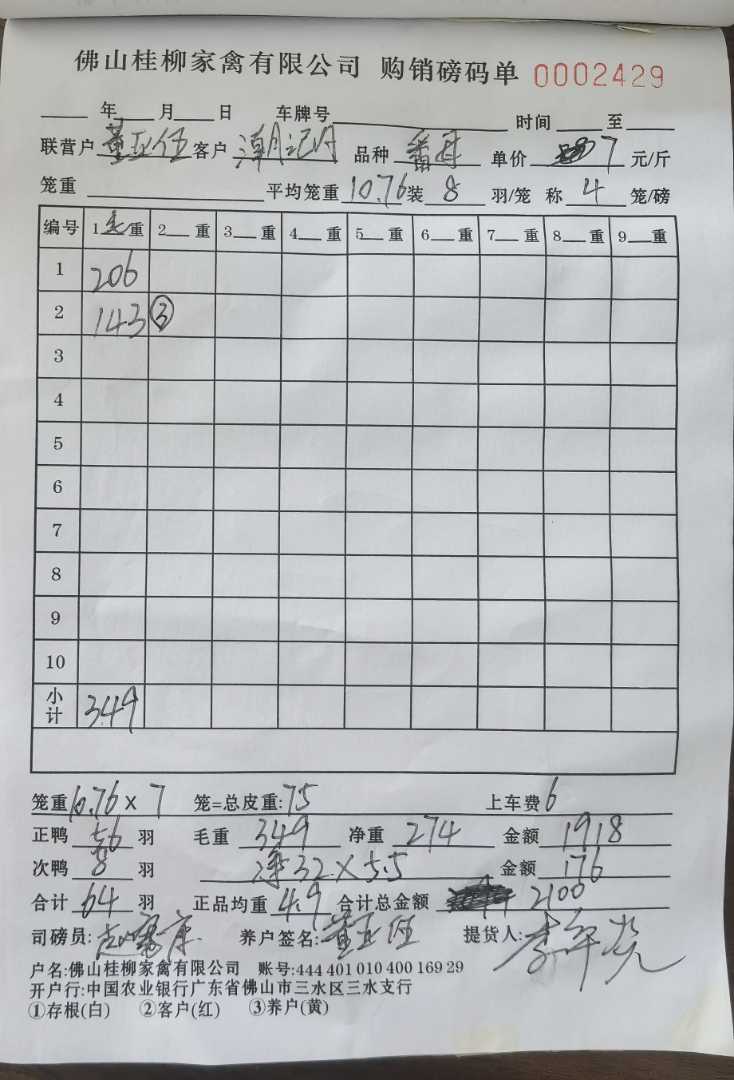 佛山桂柳家禽有限公司 购销磅码单 0002429
年 月 日 车牌号 时间 至
联营户 董亚伍 客户 潮记 品种 番 单价 7 元/斤
笼重 平均笼重 10.76 装 8 羽/笼 称 4 笼/磅
编号 1 毛 重 2 重 3 重 4 重 5 重 6 重 7 重 8 重 9 重
1 206
2 143 ③
3
4
5
6
7
8
9
10
小计 349
笼重 10.76 X 7 笼=总皮重: 75 上车费 6
正鸭 56 羽 毛重 349 净重 274 金额 1918
次鸭 8 羽 净32X5.5 金额 176
合计 64 羽 正品均重 4.9 合计总金额 2100
司磅员: 养户签名: 董亚伍 提货人: 李
户名:佛山桂柳家禽有限公司 账号:444 401 010 400 169 29
开户行:中国农业银行广东省佛山市三水区三水支行
①存根(白) ②客户(红) ③养户(黄)